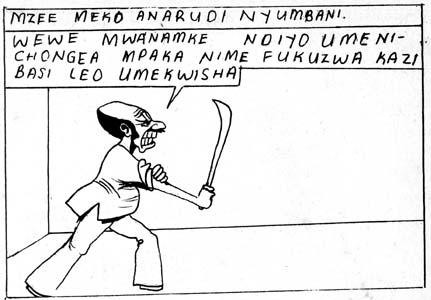 MZEE MEKO ANARUDI NYUMBANI.
WEWE MWANAMKE NDIYO UMENI-
CHONGEA MPAKA NIME FUKUZWA KAZI
BASI LEO UMEKWISHA